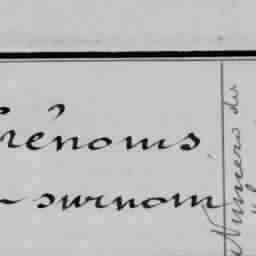 Prénoms
surnom
Numéro du